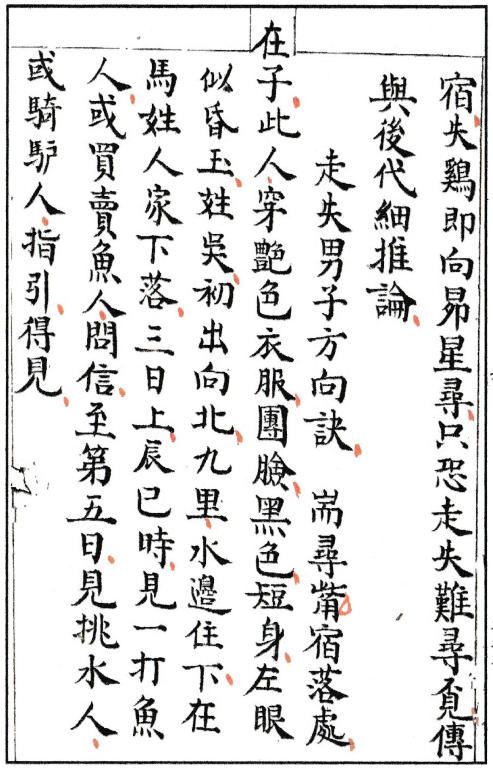 宿失鷄即向昴星尋只恐走失難尋覓傳
與後代細推論
走失男子方向訣 耑尋觜宿落處
在子此人穿艷色衣服團臉黑色短身左眼
似昏玉姓吳初出向北九里水邉住下在
馬姓人家下落三日上辰巳時見一打魚
人或買賣魚人問信至第五日見挑水人
或騎馿人指引得見